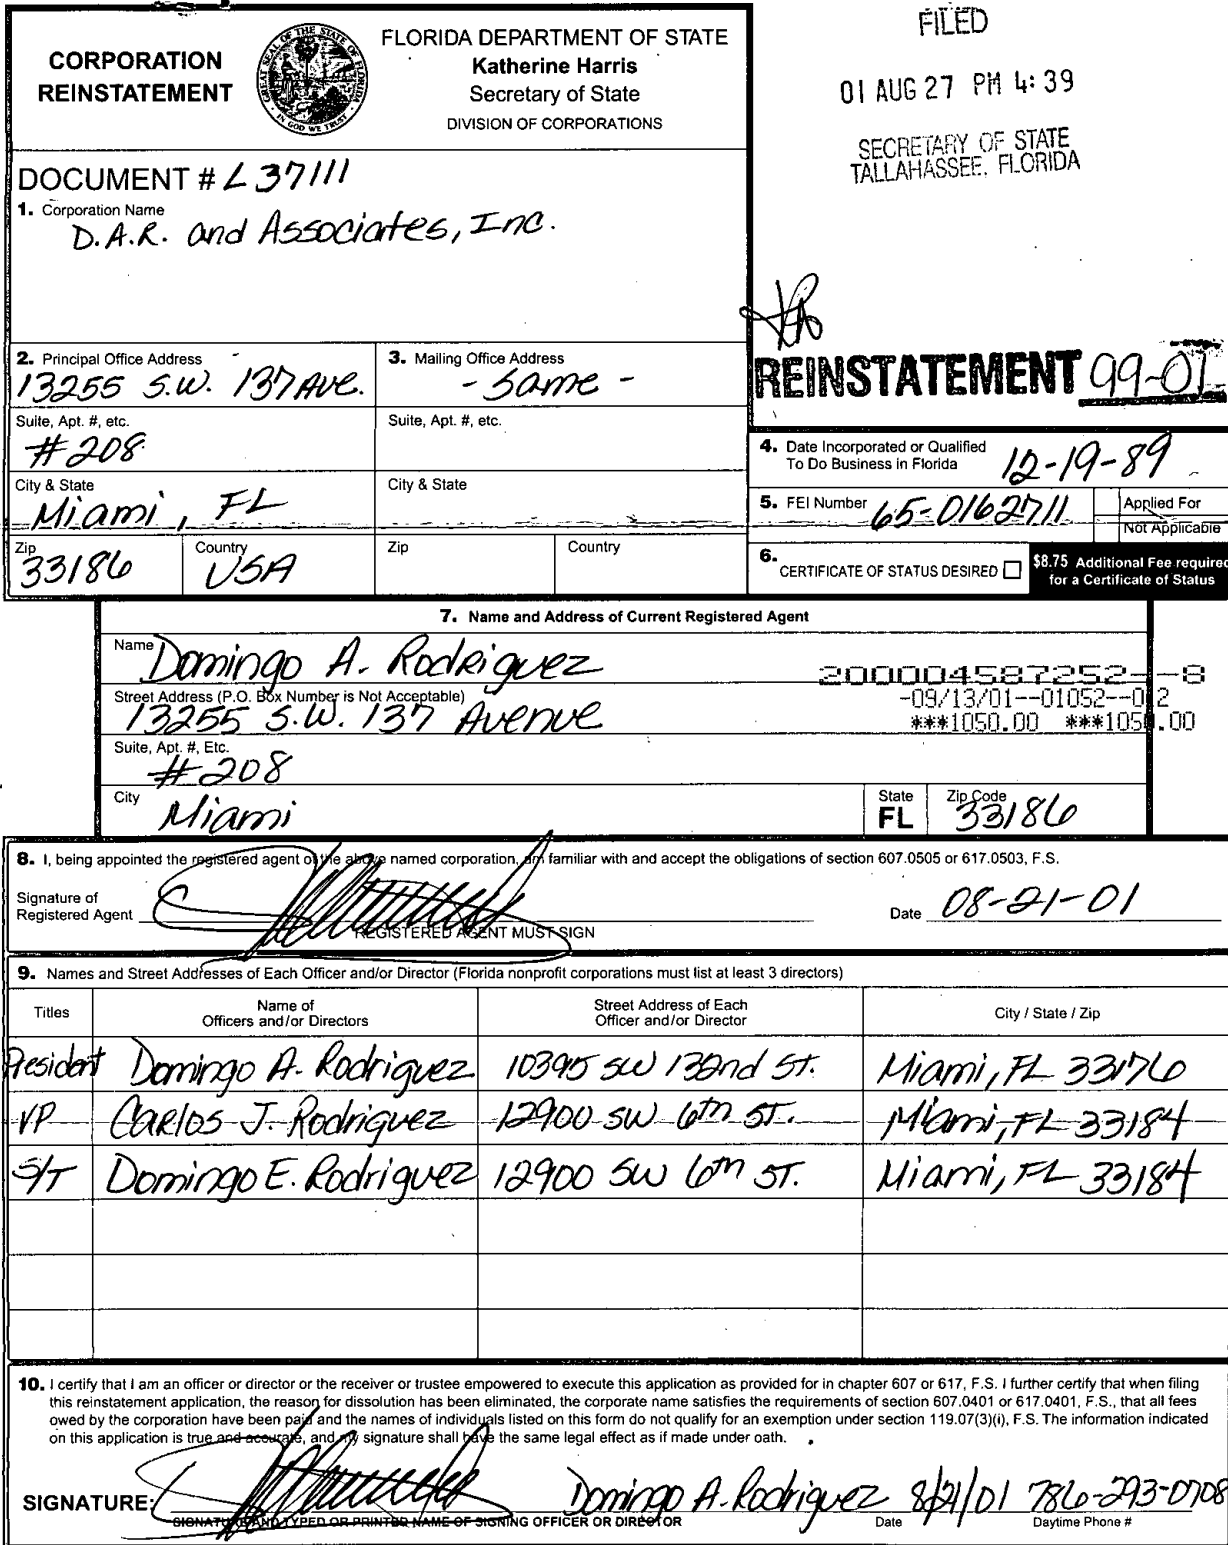 CORPORATION
REINSTATEMENT
GREAT SEAL OF THE STATE OF FLORIDA
IN GOD WE TRUST
FLORIDA DEPARTMENT OF STATE
Katherine Harris
Secretary of State
DIVISION OF CORPORATIONS
FILED
01 AUG 27 PM 4:39
SECRETARY OF STATE
TALLAHASSEE, FLORIDA
DOCUMENT # L37111
1. Corporation Name
D.A.R. and Associates, Inc.
REINSTATEMENT 99-01
2. Principal Office Address
13255 S.W. 137 Ave.
3. Mailing Office Address
- Same -
Suite, Apt. #, etc.
#208
Suite, Apt. #, etc.
City & State
Miami, FL
City & State
Zip
33186
Country
USA
Zip
Country
4. Date Incorporated or Qualified
To Do Business in Florida
12-19-89
5. FEI Number 65-0162711
Applied For
Not Applicable
6. CERTIFICATE OF STATUS DESIRED
$8.75 Additional Fee required
for a Certificate of Status
7. Name and Address of Current Registered Agent
Name Domingo A. Rodriguez
Street Address (P.O. Box Number is Not Acceptable)
13255 S.W. 137 Avenue
200004587252--8
-09/13/01--01052--0 2
***1050.00 ***1050.00
Suite, Apt. #, Etc.
#208
City
Miami
State
FL
Zip Code
33186
8. I, being appointed the registered agent of the above named corporation, am familiar with and accept the obligations of section 607.0505 or 617.0503, F.S.
Signature of
Registered Agent
REGISTERED AGENT MUST SIGN
Date 08-21-01
9. Names and Street Addresses of Each Officer and/or Director (Florida nonprofit corporations must list at least 3 directors)
Titles
Name of
Officers and/or Directors
Street Address of Each
Officer and/or Director
City / State / Zip
President Domingo A. Rodriguez 10395 SW 132nd ST. Miami, FL 33176
VP Carlos J. Rodriguez 12900 SW 6th ST. Miami, FL 33184
S/T Domingo E. Rodriguez 12900 SW 6th ST. Miami, FL 33184
10. I certify that I am an officer or director or the receiver or trustee empowered to execute this application as provided for in chapter 607 or 617, F.S. I further certify that when filing
this reinstatement application, the reason for dissolution has been eliminated, the corporate name satisfies the requirements of section 607.0401 or 617.0401, F.S., that all fees
owed by the corporation have been paid and the names of individuals listed on this form do not qualify for an exemption under section 119.07(3)(i), F.S. The information indicated
on this application is true and accurate, and my signature shall have the same legal effect as if made under oath.
SIGNATURE: Domingo A. Rodriguez 8/21/01 786-293-0708
SIGNATURE AND TYPED OR PRINTED NAME OF SIGNING OFFICER OR DIRECTOR
Date
Daytime Phone #